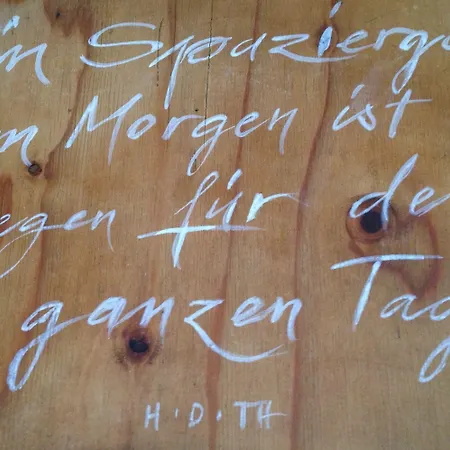 in Spazierga
m Morgen ist
egen für de
ganzen Tag
H. D. TH